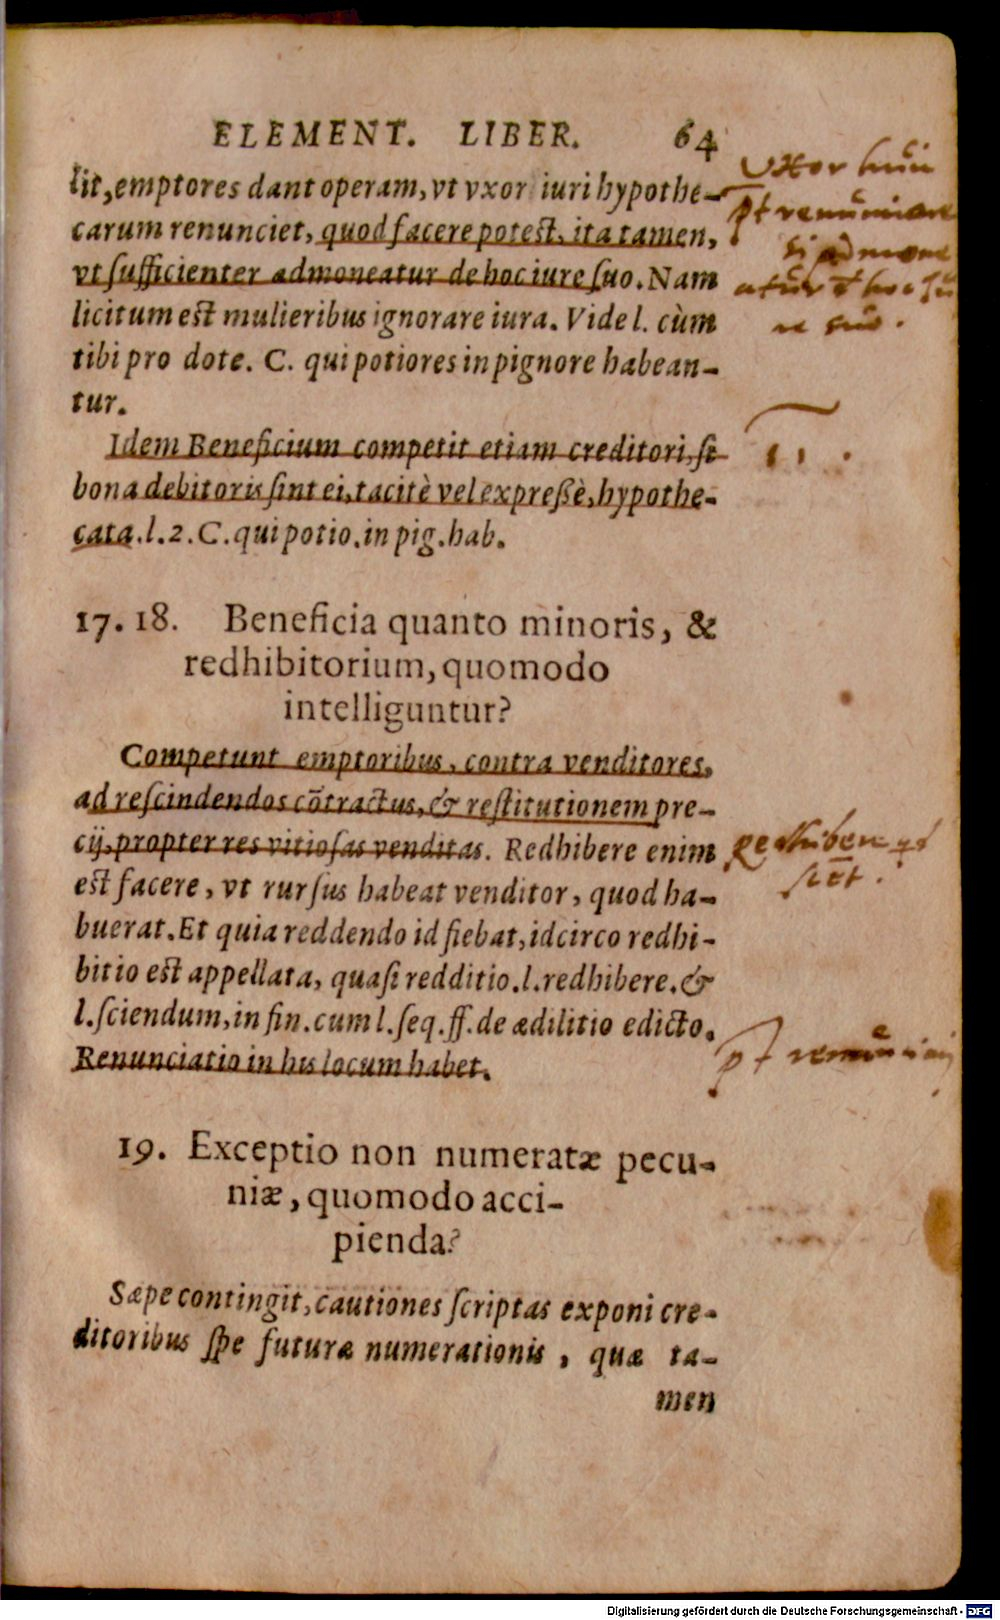 ELEMENT. LIBER. 64
lit, emptores dant operam, vt vxor iuri hypothe-
carum renunciet, quod facere potest, ita tamen,
vt ſufficienter admoneatur de hoc iure ſuo. Nam
licitum est mulieribus ignorare iura. Vide l. cùm
tibi pro dote. C. qui potiores in pignore habean-
tur.
Idem Beneficium competit etiam creditori, ſi
bona debitoris ſint ei, tacitè vel expreßè, hypothe-
cata. l. 2. C. qui potio. in pig. hab.
17. 18. Beneficia quanto minoris, &
redhibitorium, quomodo
intelliguntur?
Competunt emptoribus, contra venditores,
ad reſcindendos cõtractus, & reſtitutionem pre-
cij, propter res vitioſas venditas. Redhibere enim
est facere, vt rurſus habeat venditor, quod ha-
buerat. Et quia reddendo id fiebat, idcirco redhi-
bitio est appellata, quaſi redditio. l. redhibere. &
l. ſciendum, in fin. cum l. ſeq. ff. de ædilitio edicto.
Renunciatio in his locum habet.
19. Exceptio non numeratæ pecu-
niæ, quomodo acci-
pienda?
Sæpe contingit, cautiones ſcriptas exponi cre-
ditoribus ſpe futuræ numerationis, quæ ta-
men
Vxor
renunciare
si admone
atur
suo.
11.
Redhibere
Digitalisierung gefördert durch die Deutsche Forschungsgemeinschaft - DFG